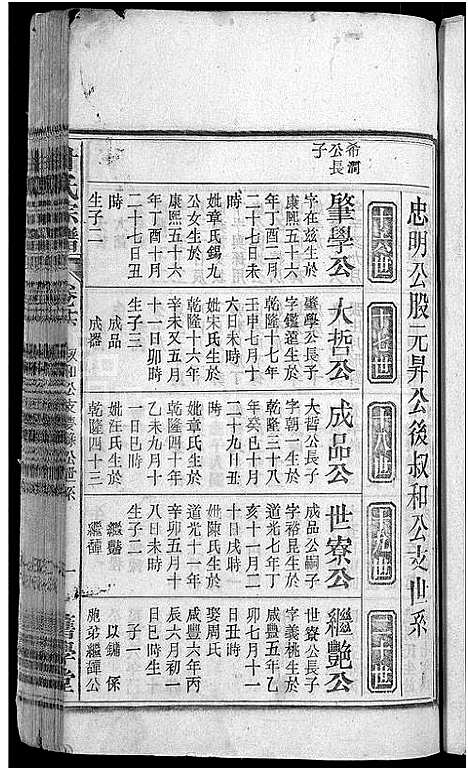 忠明公股元昇公後叔和公支世系
十六世
十七世
十八世
十九世
二十世
希潤
公長
子
肇學公
字在茲生於
康熙五十六
年丁酉二月
二十七日未
時
妣章氏錫九
公女生於
康熙五十六
年丁酉十月
二十七日丑
時
生子二
大哲公
肇學公長子
字鑑遠生於
乾隆十七年
壬申七月十
六日未時
妣宋氏生於
乾隆十六年
辛未又五月
十一日卯時
生子三
成品
成器
成品公
大哲公長子
字朝一生於
乾隆三十八
年癸巳十月
二十九日丑
時
妣章氏生於
乾隆四十年
乙未九月十
一日巳時
妣汪氏生於
乾隆四十三
世寮公
成品公嗣子
字裕昆生於
道光七年丁
亥十一月二
十日戌時
妣陳氏生於
道光十一年
辛卯五月十
八日未時
生子二
繼艷
繼譁
繼艷公
世寮公長子
字義桃生於
咸豐五年乙
卯七月十一
日丑時
娶周氏
咸豐六年丙
辰六月初一
日巳時生
子一
以鏽 係
胞弟繼譁公
氏宗譜